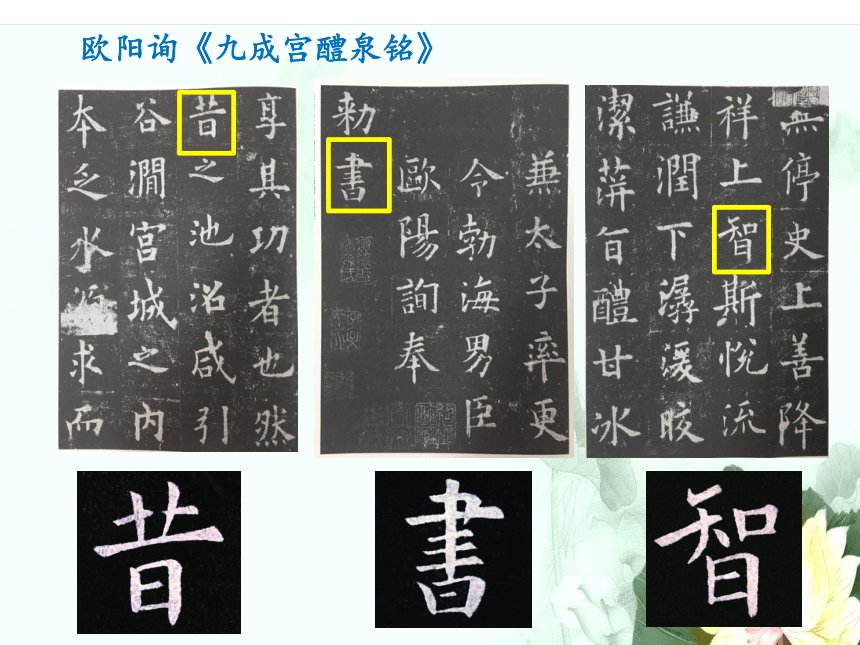 欧阳询《九成宫醴泉铭》
享其功者也然
昔之池沼咸引
谷澗宫城之内
本乏水源求而
兼太子率更
令勃海男臣
歐陽詢奉
勑書
無停史上善降
祥上智斯悦流
謙潤下潺湲皎
潔蓱旨醴甘冰
昔
書
智